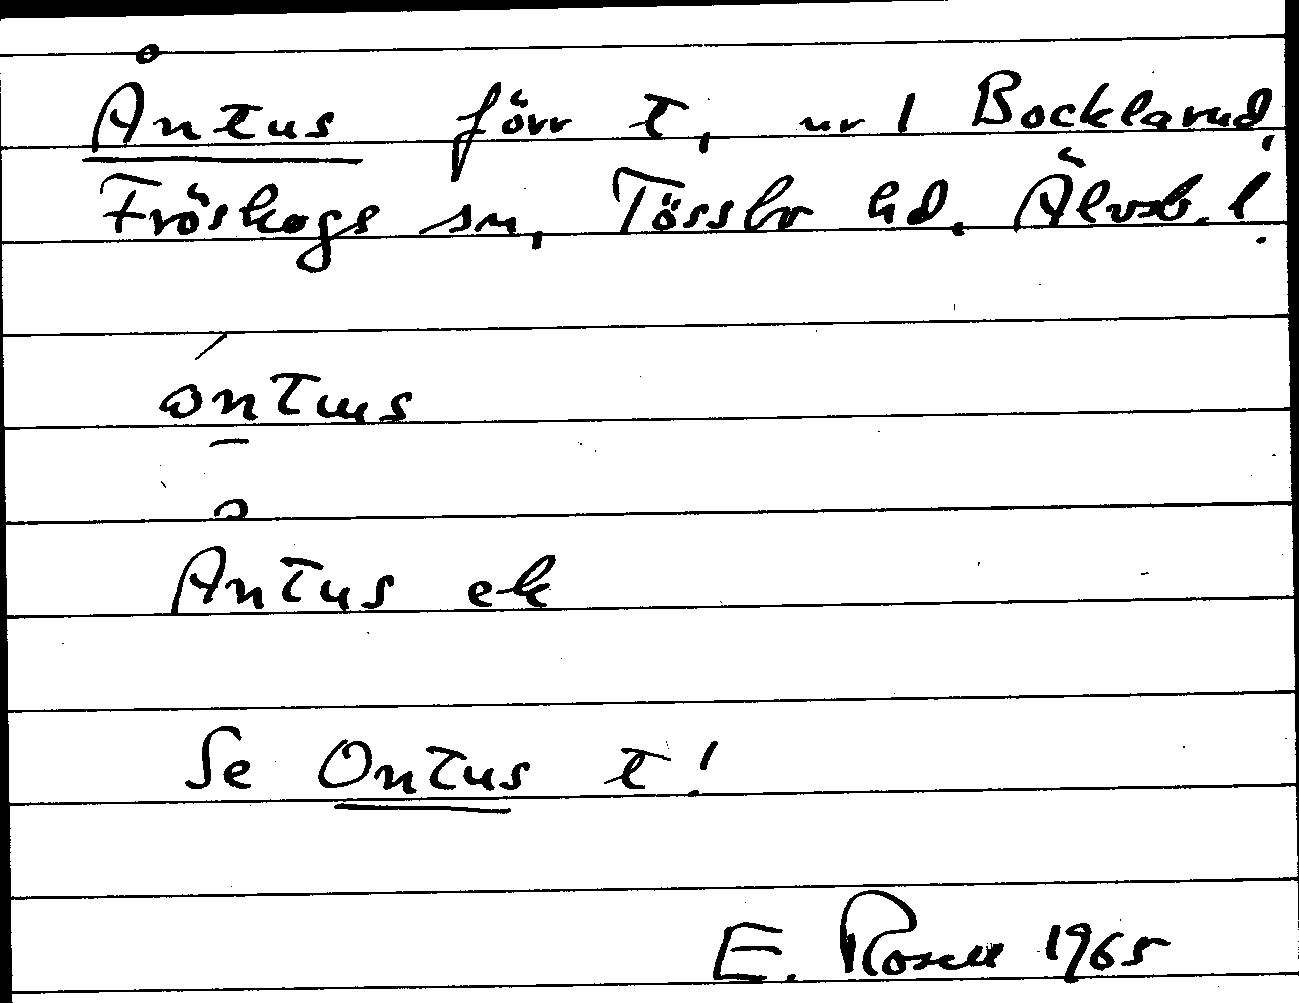 Åntus förr t, nr 1 Bocklarud,
Fröskogs sn, Tössbo hd. Älvsb. l.
ɷ́ntɯs
Åntus ek
Se Ontus t!
E. Rosell 1965